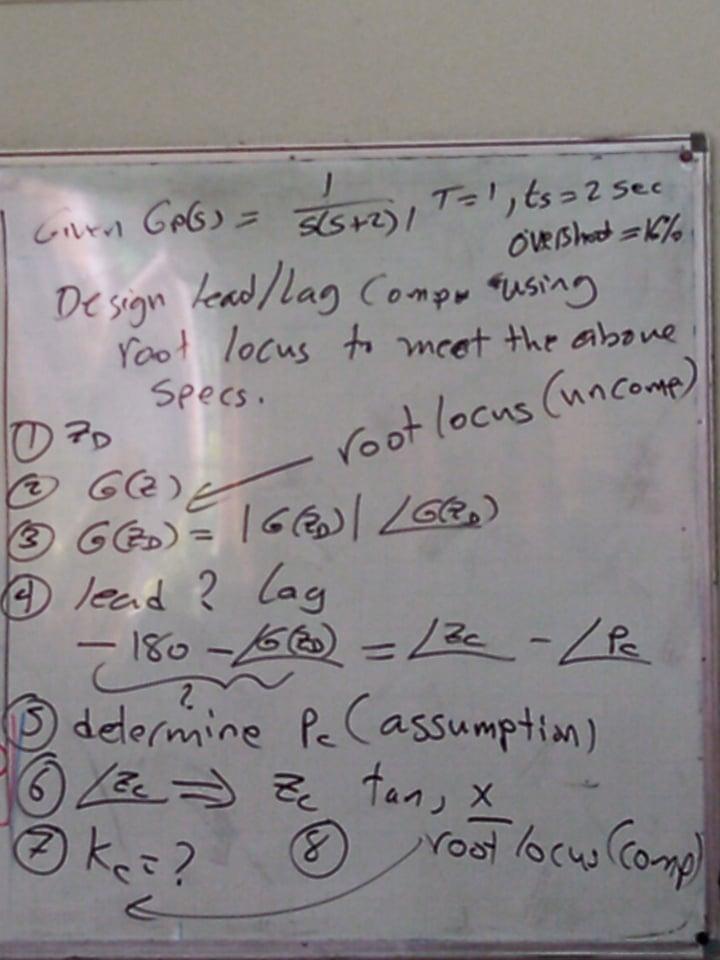 Given Gp(s) = 1/s(s+2), T=1, ts=2 sec
overshoot = 16%
Design lead/lag Comp. using
root locus to meet the above
specs.
① ZD
root locus (uncomp)
② G(Z)
③ G(ZD) = |G(ZD)| ∠G(ZD)
④ lead ? lag
- 180 - ∠G(ZD) = ∠Zc - ∠Pc
?
⑤ determine Pc (assumption)
⑥ ∠Zc ⇒ Zc tan, x
⑦ Kc = ? ⑧ root locus (comp)